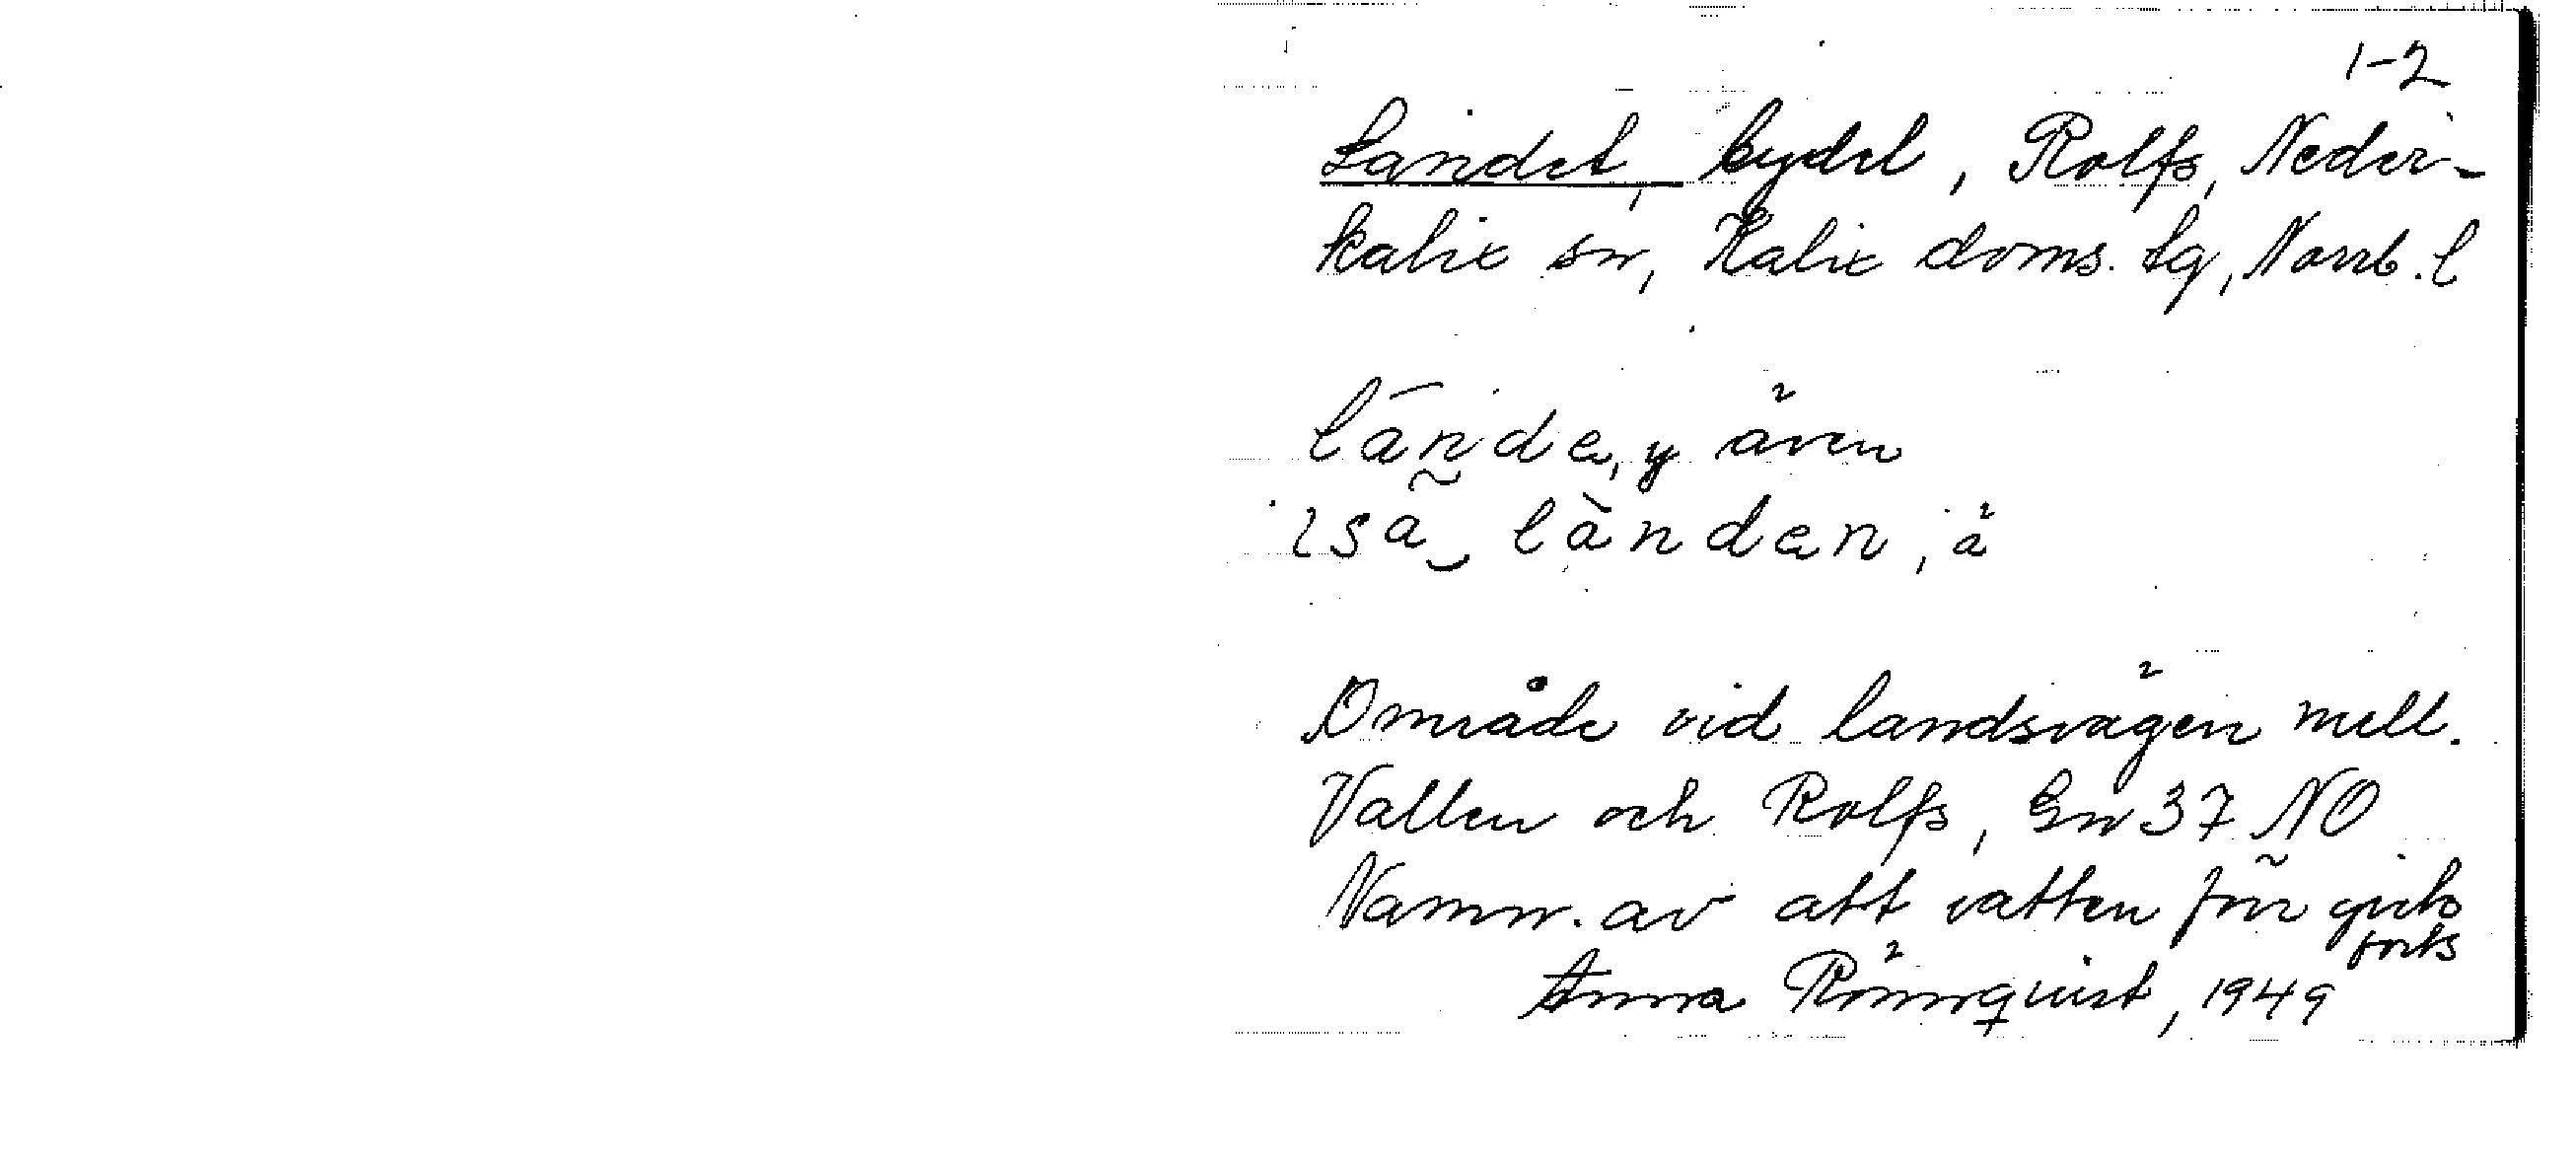 1-2
Landet, bydel, Rolfs, Neder-
kalix sn, Kalix doms. tg, Norrb. l
lánde, y även
ɩsa‿ lànden, å
Område vid landsvägen mell.
Vallen och Rolfs, Gn 37 NO
Namn. av att vatten förr gick
forts
Anna Rönnqvist, 1949